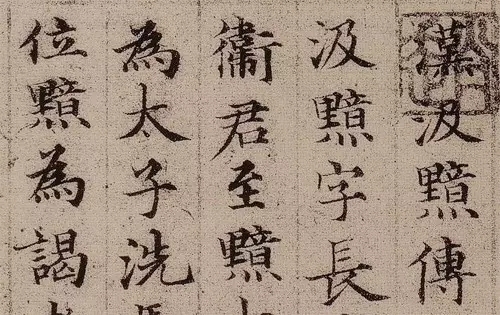 漢汲黯傳
汲黯字長
衞君至黯
為太子洗
位黯為謁